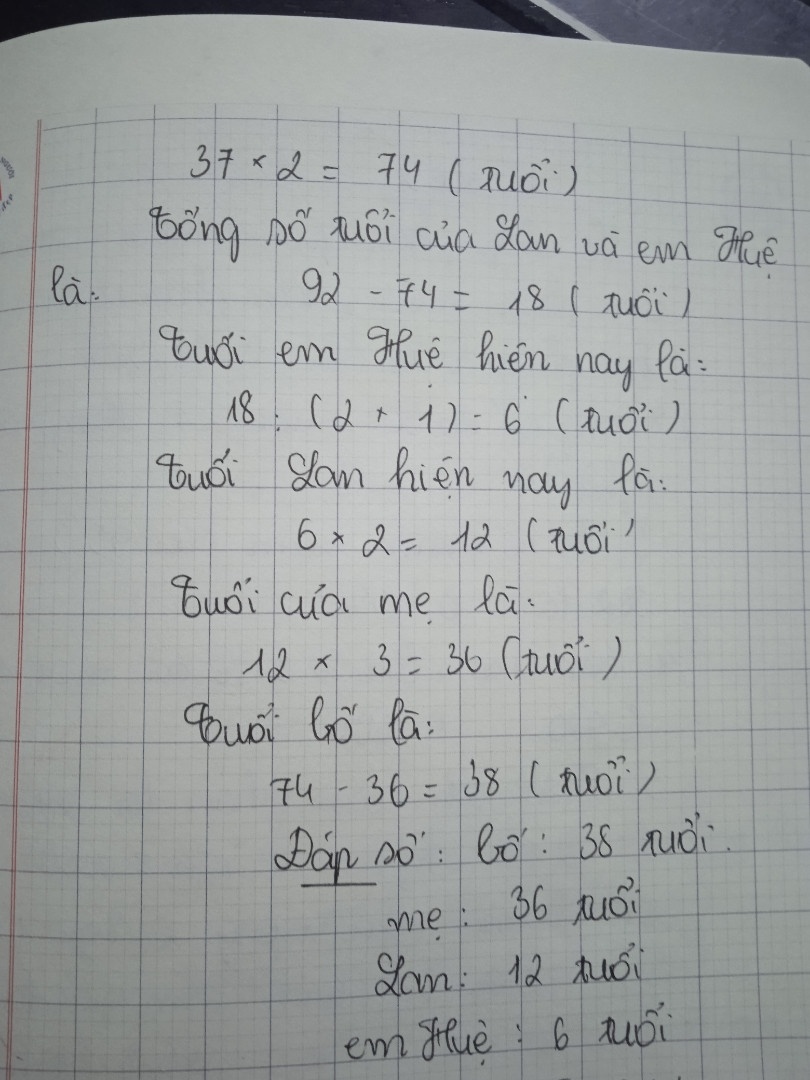 37 × 2 = 74 (tuổi)
Tổng số tuổi của Lan và em Huệ
là: 92 - 74 = 18 (tuổi)
Tuổi em Huệ hiện nay là:
18 : (2 + 1) = 6 (tuổi)
Tuổi Lan hiện nay là:
6 × 2 = 12 (tuổi)
Tuổi của mẹ là:
12 × 3 = 36 (tuổi)
Tuổi bố là:
74 - 36 = 38 (tuổi)
Đáp số: bố: 38 tuổi.
mẹ: 36 tuổi
Lan: 12 tuổi
em Huệ: 6 tuổi